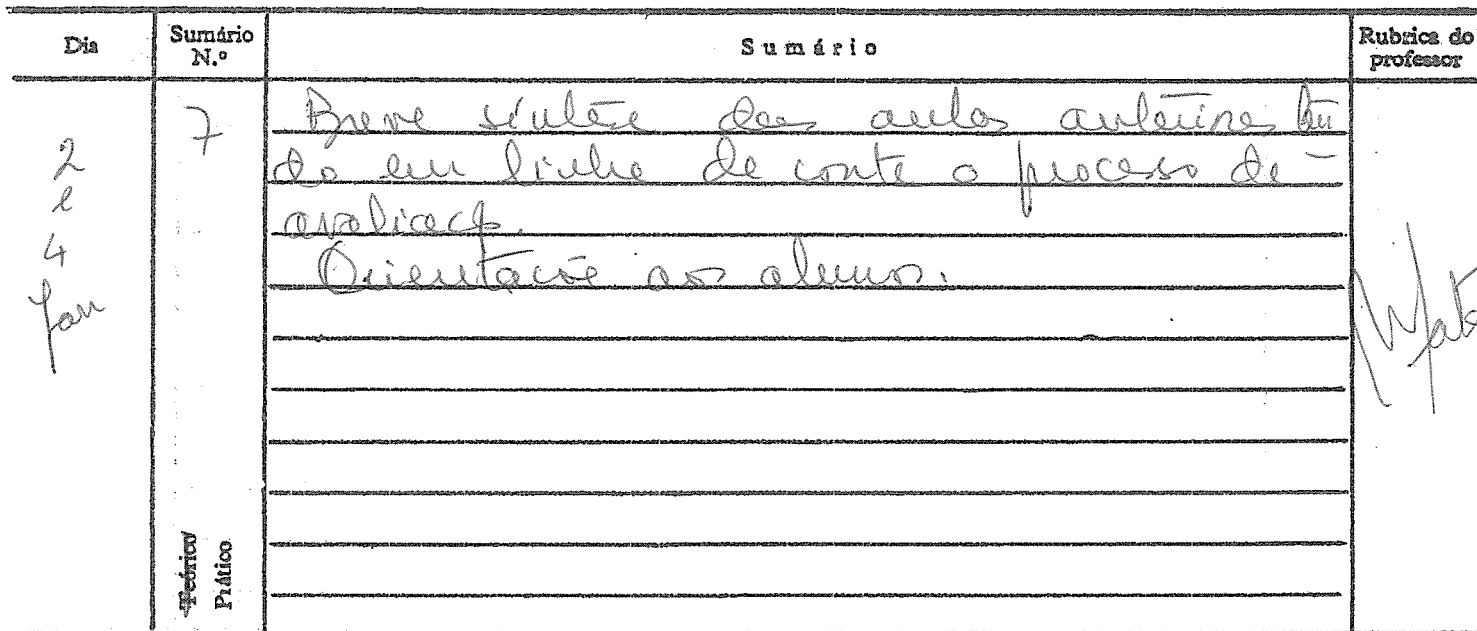 Dia
Sumário N.º
Sumário
Rubrica do professor
2 e 4 Jan
7
Breve síntese das aulas anteriores ten
do em linha de conta o processo de
avaliação.
Orientações aos alunos.
Teórico
Prático